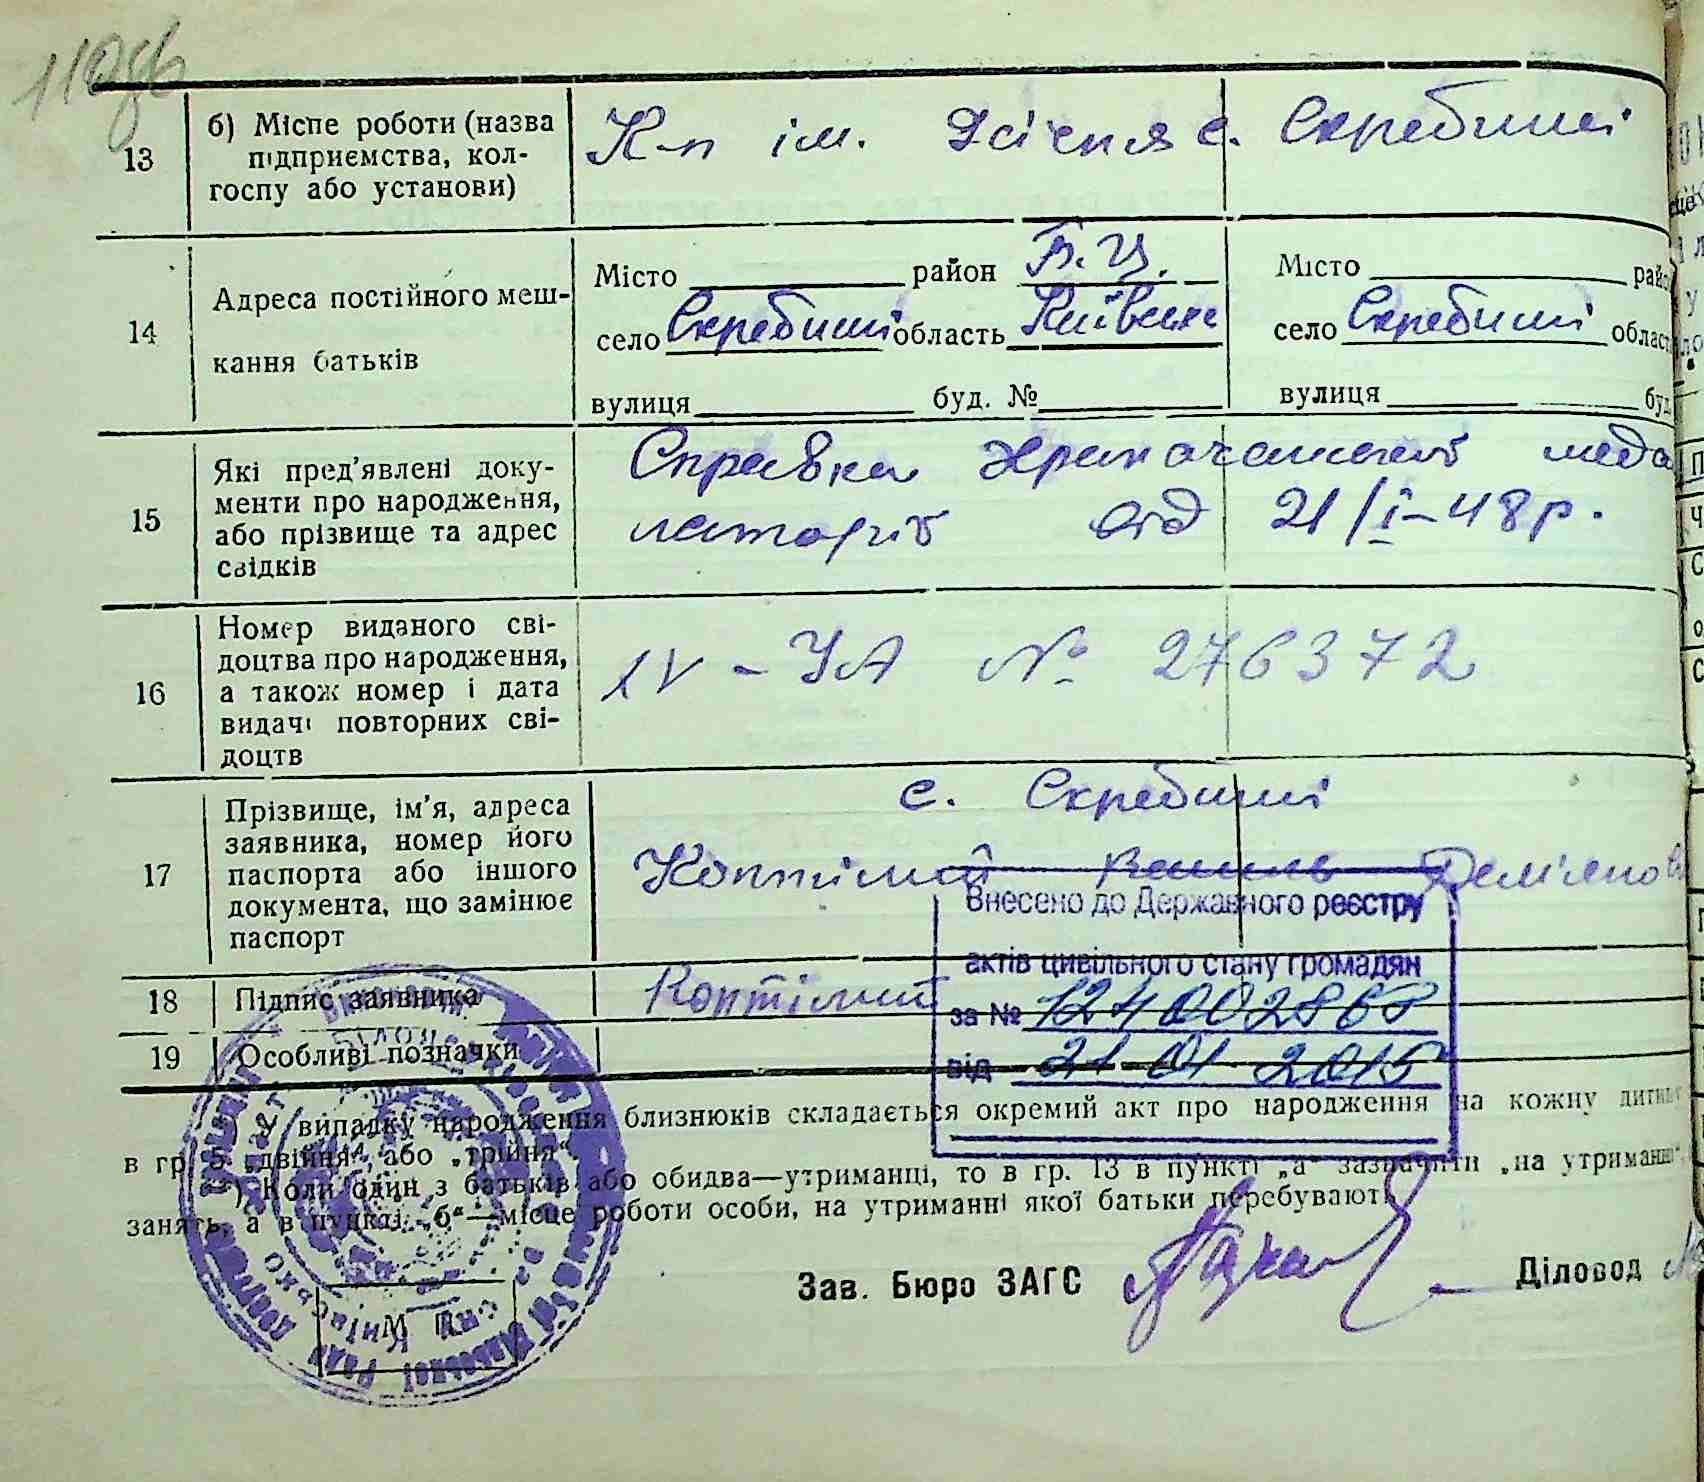 13
б) Місце роботи (назва
підприємства, кол-
госпу або установи)
К-п ім. с. Скребиші
14
Адреса постійного меш-
кання батьків
Місто район Б. Ц.
село Скребиші область Київська
вулиця буд. №
Місто райо
село Скребиші област
вулиця буд
15
Які пред'явлені доку-
менти про народження,
або прізвище та адрес
свідків
Справка
від 21/I-48 р.
16
Номер виданого сві-
доцтва про народження,
а також номер і дата
видачі повторних сві-
доцтв
IV - УА № 276372
17
Прізвище, ім'я, адреса
заявника, номер його
паспорта або іншого
документа, що замінює
паспорт
с. Скребиші
Коптілий
Внесено до Державного реєстру
актів цивільного стану громадян
за № 1240028
від 21 01 2015
18
Підпис заявника
Коптілий
19
Особливі позначки
У випадку народження близнюків складається окремий акт про народження на кожну дитину
в гр. 5 „двійня“, або „трійня“.
Коли один з батьків або обидва—утриманці, то в гр. 13 в пункті „а“ зазначити „на утриманні“,
занять, а в пункті „б“—місце роботи особи, на утриманні якої батьки перебувають
Зав. Бюро ЗАГС
Діловод